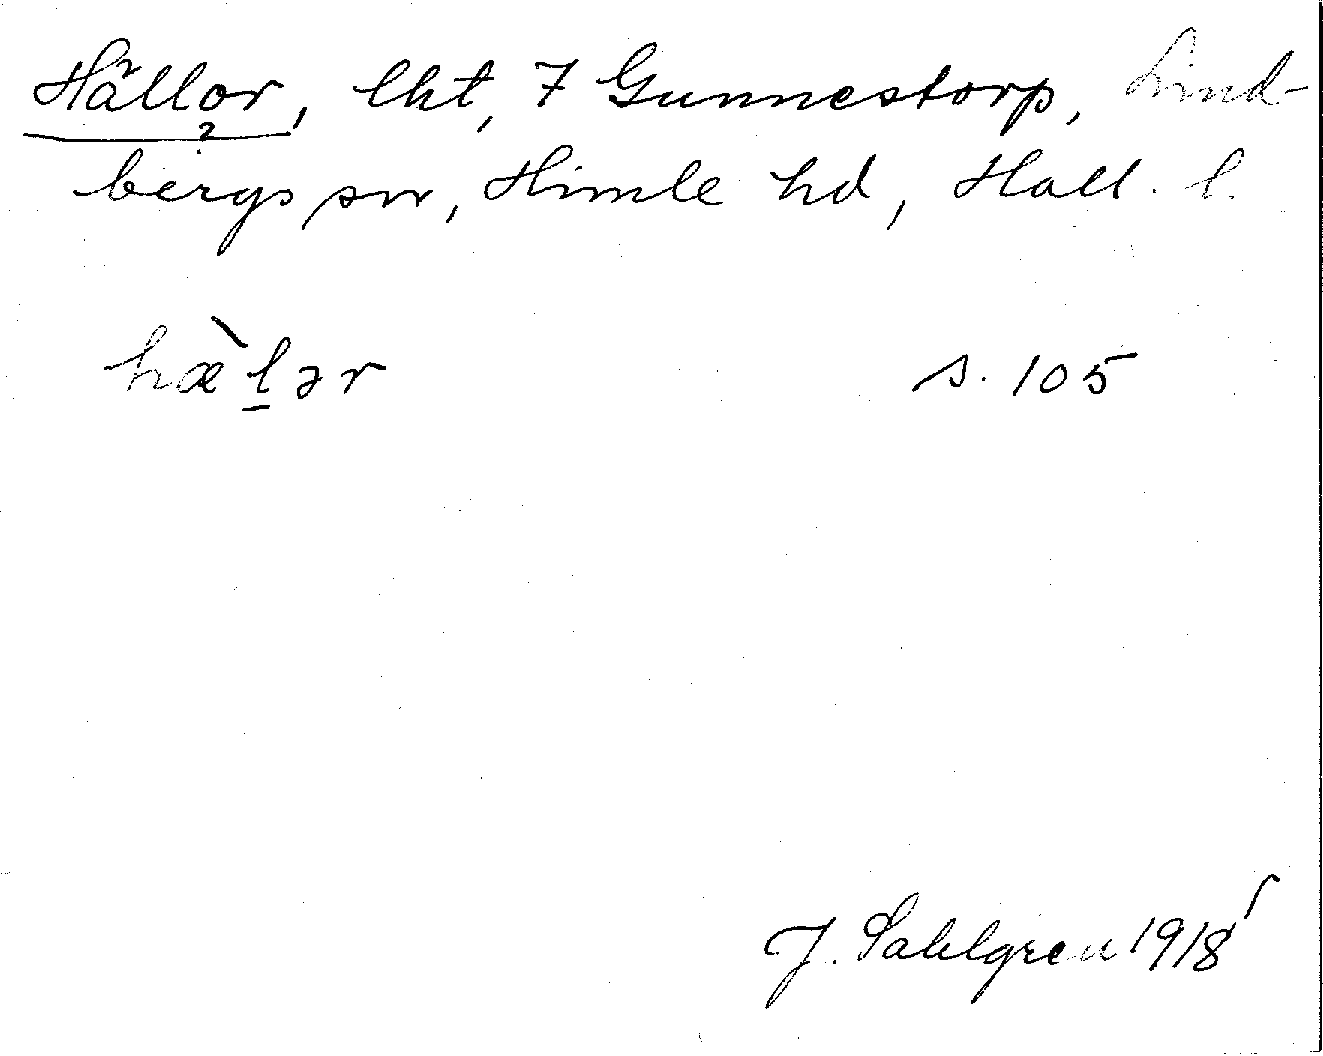 Hällor, lht, 7 Gunnestorp, Lind-
bergs sn, Himle hd, Hall. l.
hæ̀l̠ər s. 105
J. Sahlgren 1918